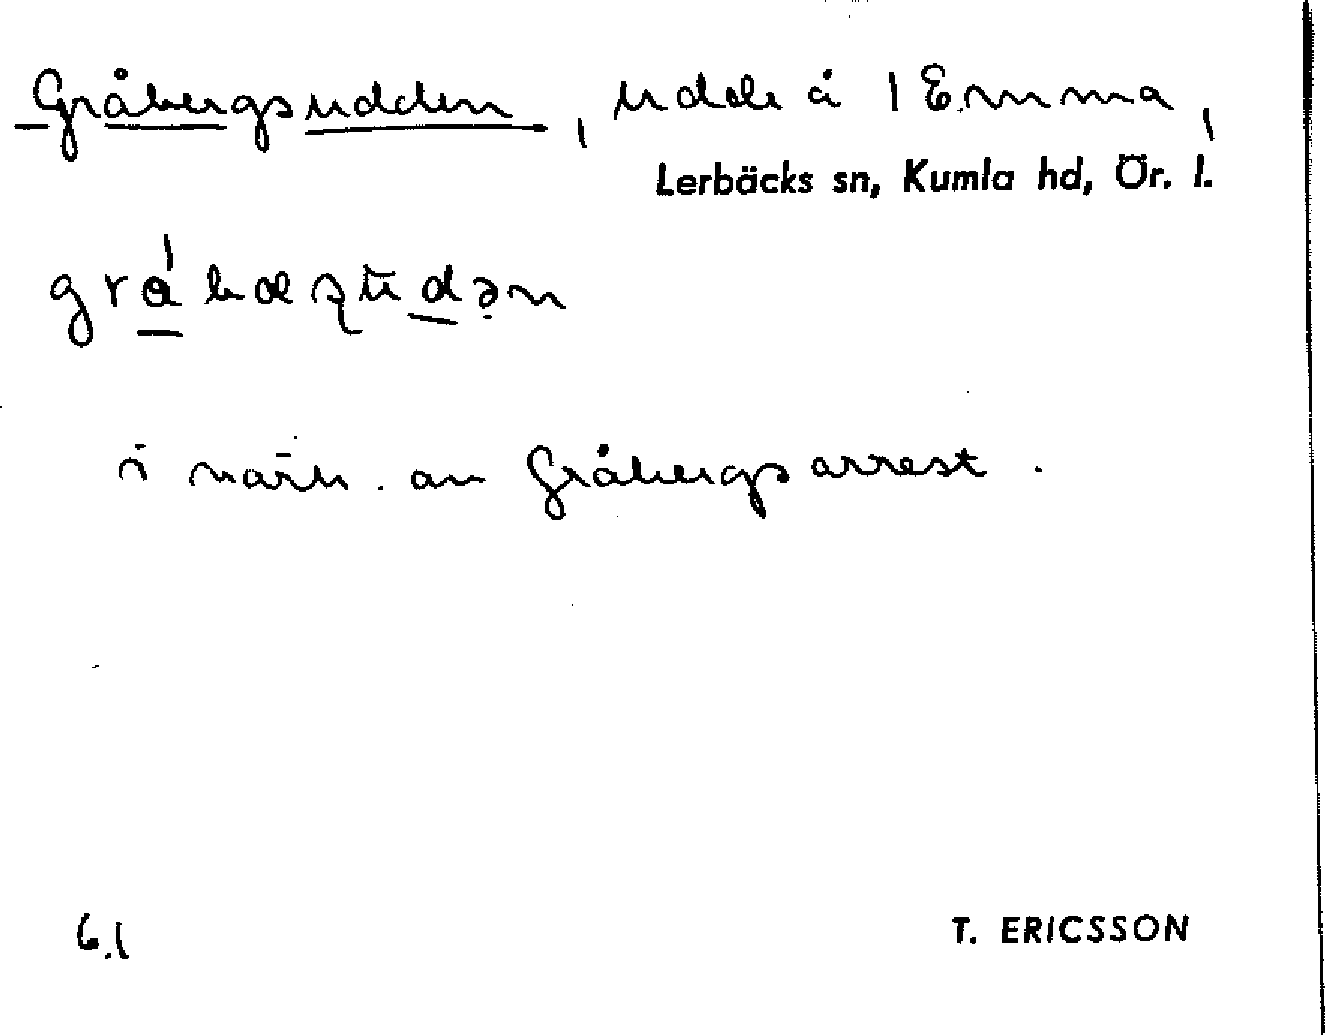 Gråbergsudden, udde å 1 Emma,
Lerbäcks sn, Kumla hd, Ör. l.
i närh. av Gråbergsarrest.
6.1
T. ERICSSON